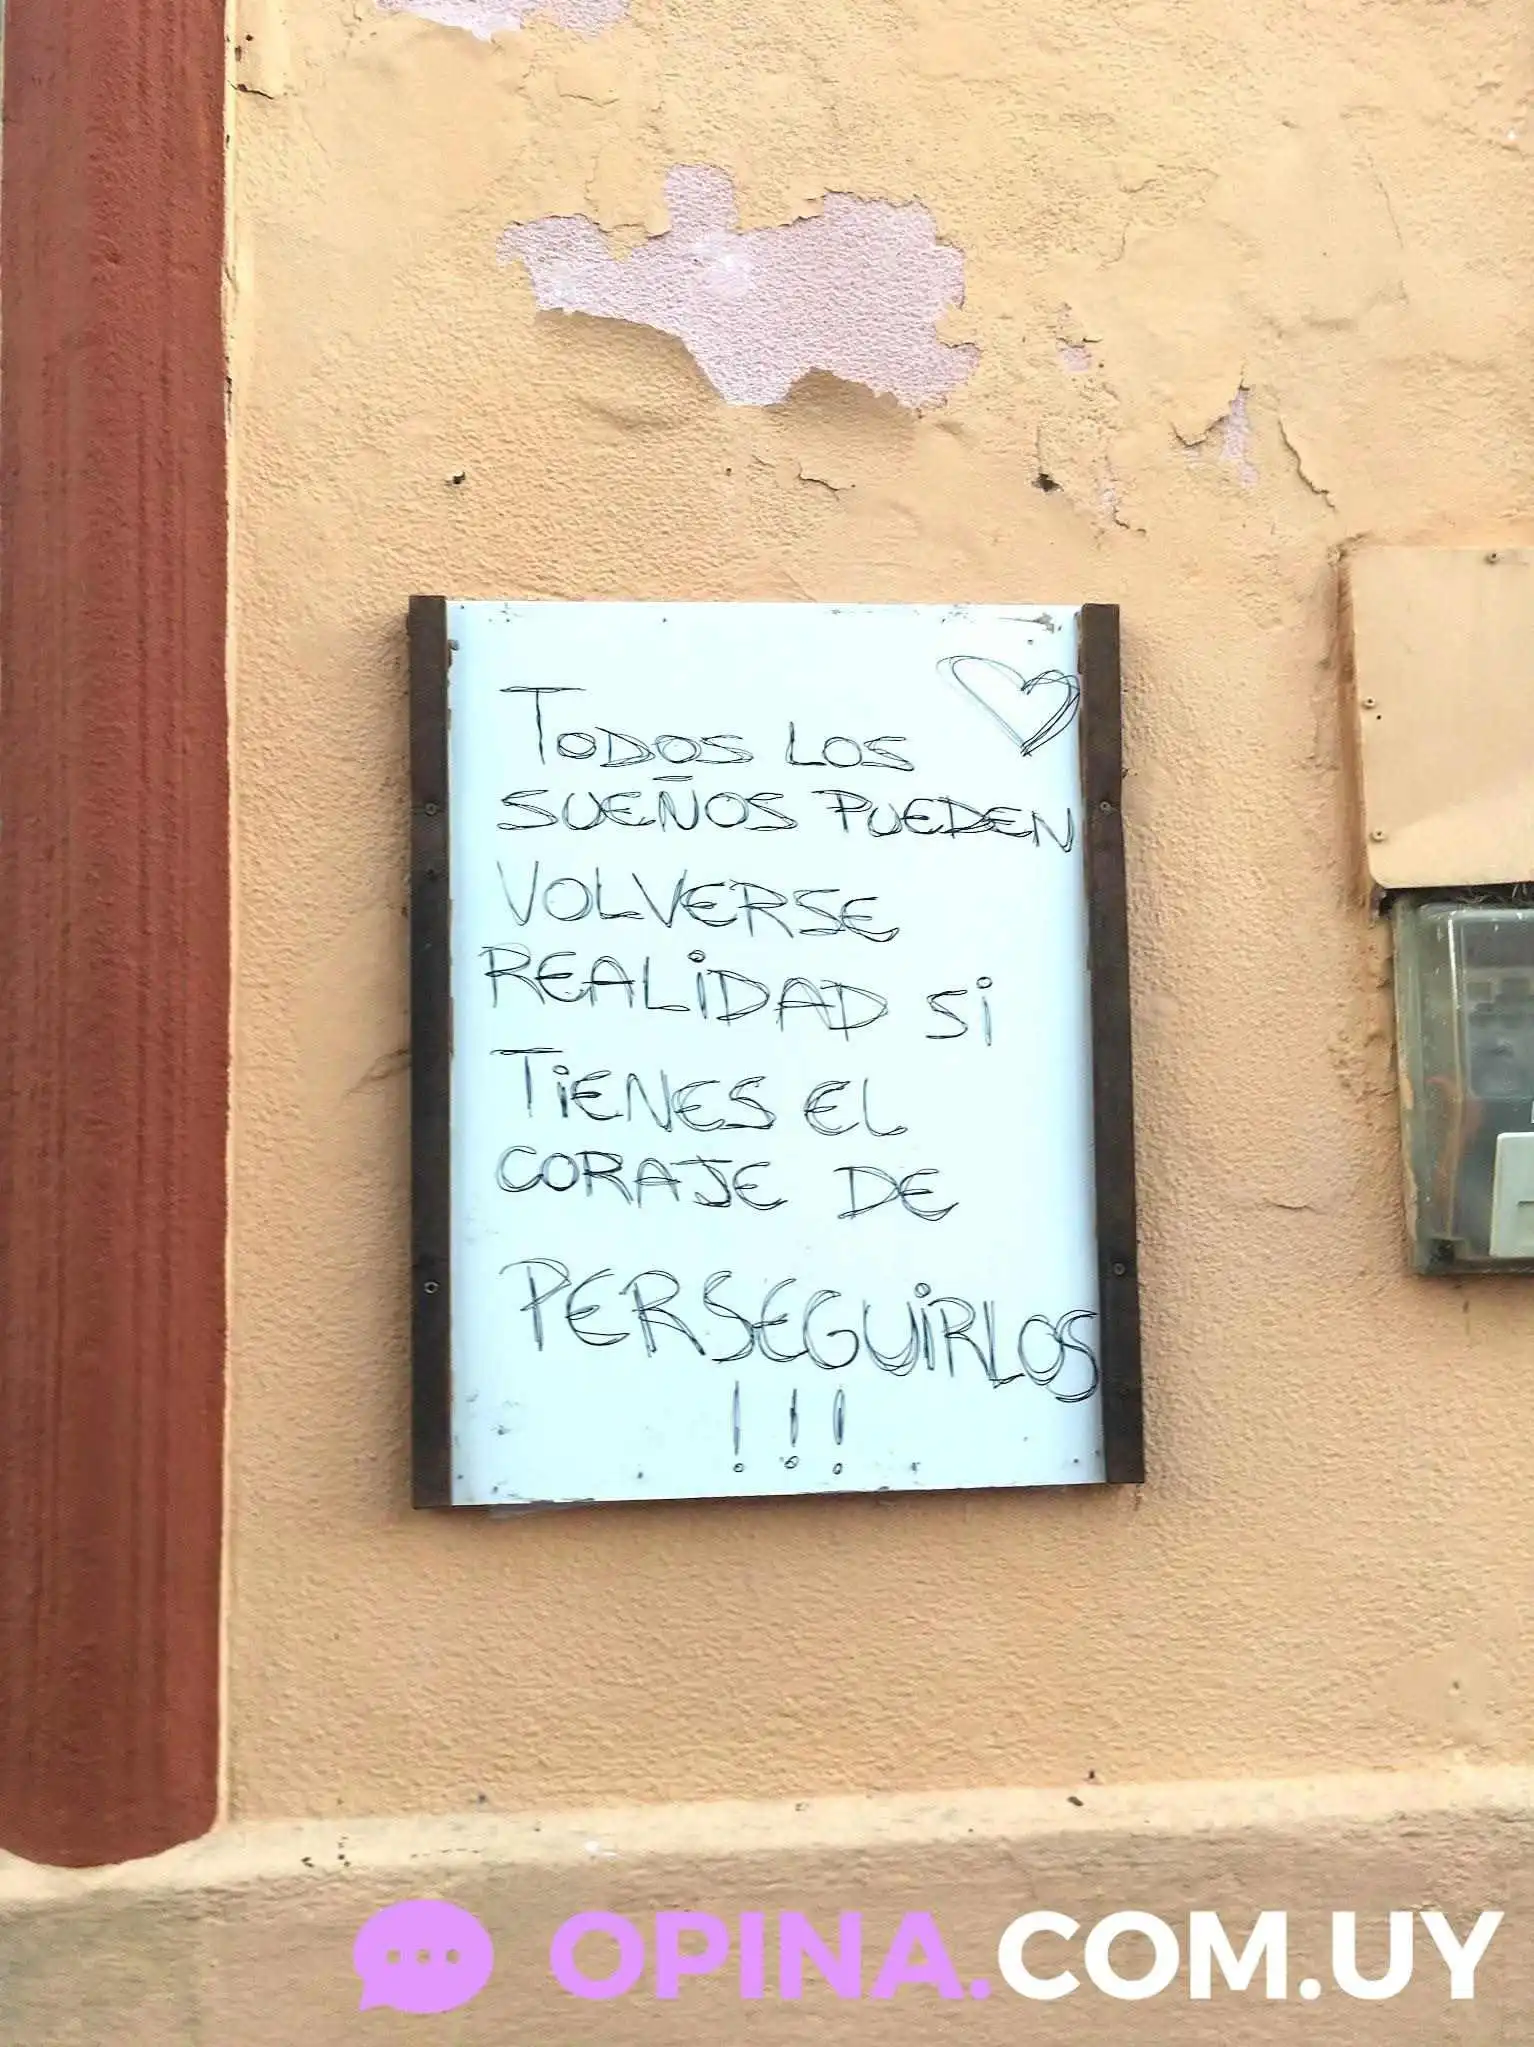 Todos los
sueños pueden
volverse
realidad si
tienes el
coraje de
perseguirlos
!!!
OPINA.COM.UY